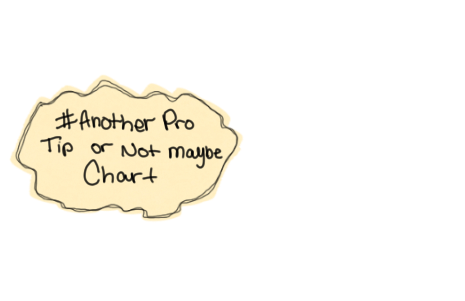 #Another Pro
Tip or Not maybe
Chart